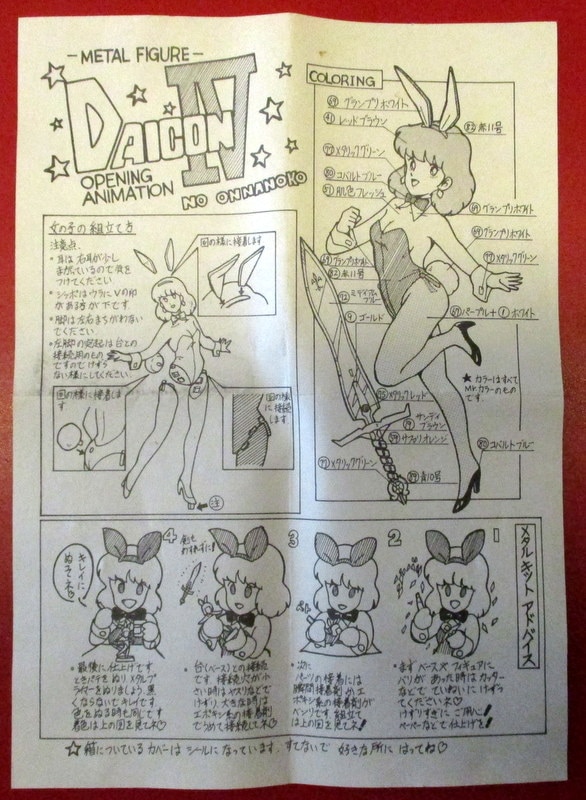 -METAL FIGURE-
DAICON IV
OPENING
ANIMATION
NO ONNANOKO
COLORING
69 グランプリホワイト
41 レッドブラウン
メタリックグリーン
80 コバルトブルー
51 肌色フレッシュ
赤11号
69 グランプリホワイト
69 グランプリホワイト
メタリックグリーン
69 グランプリホワイト
赤11号
ミディアムブルー
9 ゴールド
パープル + 1 ホワイト
メタリックレッド
サンディブラウン
19
59 サファリオレンジ
メタリックグリーン
青10号
80 コバルトブルー
★ カラーはすべて
Mr.カラーのもの
です。
女の子の組立て方
注意点
・耳は右耳が少し
まがっているので気を
つけてください
・シッポはウラにVの印
がある方が下です。
・脚は左右まちがわない
でください
・左脚の突起は台との
接続用のもの
ですのでけずら
ない様にしてください。
図の様に接着します
図の様に接着します
図の様に接続します
注
メタルキット アドバイス
1
・まずベースや フィギュアに
バリがあった時はカッター
などで ていねいに けずっ
てくださいネ♡
けずりすぎに ご用心!
ペーパーなどで仕上げを!
2
・次に
パーツの接着には
瞬間接着剤か エ
ポキシ系の接着剤が
ベンリです。組立て
は上の図を見てネ!
3
剣も
お忘れずに!
・台(ベース)との接続
です。接続穴が小
さい時はヤスリなどで
けずり、大きな時は
エポキシ系の接着剤
でうめて接続してネ♡
4
キレイに
ぬってネ♡
・最後に仕上げです
ときパテを ぬり メタルプ
ライマーをぬりましょう。黒
くならないでキレイです
色をぬる時も同じです
着色は上の図を見てネ♡
☆ 箱についている カバーは シールに なっています。すてないで 好きな所に はってね♡